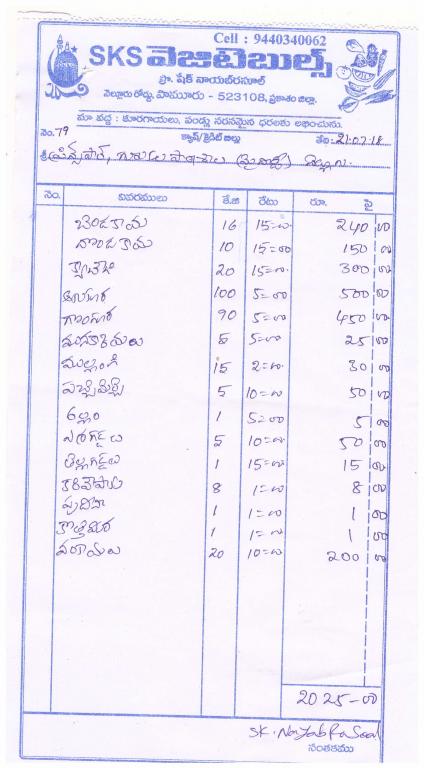 Cell : 9440340062
SKS వెజిటెబుల్స్
ప్రొ. షేక్ నాయబ్‌రసూల్
వెల్లూరు రోడ్డు, పామూరు - 523108, ప్రకాశం జిల్లా.
మా వద్ద : కూరగాయలు, పండ్లు సరసమైన ధరలకు లభించును.
నెం. 79 క్యాష్/క్రెడిట్ బిల్లు తేది 21-07-18
శ్రీ ప్రిన్సిపాల్,
నెం. వివరములు కే.జి రేటు రూ. పై
బెండకాయ 16 15=00 240 00
దొండకాయ 10 15=00 150 00
20 15=00 300 00
100 5=00 500 00
గోంగూర 90 5=00 450 00
మునకాయలు 5 5=00 25 00
ముల్లంగి 15 2=00 30 00
5 10=00 50 00
అల్లం 1 5=00 5 00
ఎర్రగడ్డలు 5 10=00 50 00
తెల్లగడ్డలు 1 15=00 15 00
కరివేపాకు 8 1=00 8 00
పుదీనా 1 1=00 1 00
కొత్తిమీర 1 1=00 1 00
20 10=00 200 00
2025-00
SK. Nayab Rasool
సంతకము